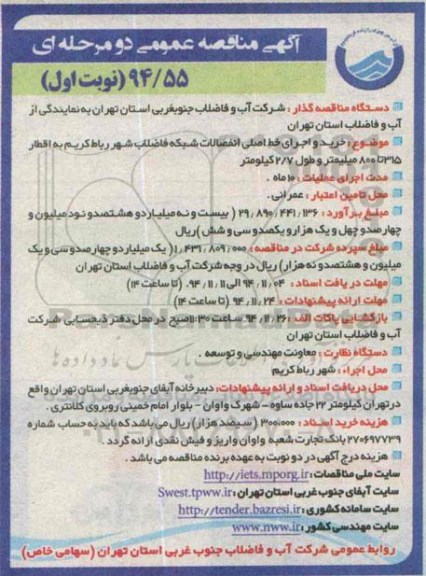 آگهی مناقصه عمومی دو مرحله ای
۹۴/۵۵ (نوبت اول)
دستگاه مناقصه گذار : شرکت آب و فاضلاب جنوبغربی استان تهران به نمایندگی از
آب و فاضلاب استان تهران
موضوع : خرید و اجرای خط اصلی انفصالات شبکه فاضلاب شهر رباط کریم به اقطار
۳۱۵ تا ۸۰۰ میلیمتر و طول ۲/۷ کیلومتر
مدت اجرای عملیات : ۱۰ ماه .
محل تامین اعتبار : عمرانی.
مبلغ برآورد : ۲۹,۸۹۰,۴۴۱,۱۳۶ ( بیست و نه میلیارد و هشتصد و نود میلیون و
چهارصد و چهل و یک هزار و یکصد و سی و شش )ریال
مبلغ سپرده شرکت در مناقصه: ۱,۴۳۱,۸۰۹,۰۰۰( یک میلیارد و چهارصد و سی و یک
میلیون و هشتصد و نه هزار) ریال در وجه شرکت آب و فاضلاب استان تهران
مهلت دریافت اسناد : ۹۴,۱۱,۰۴ الی ۹۴,۱۱,۱۱. (تا ساعت ۱۴)
مهلت ارائه پیشنهادات : ۹۴,۱۱,۲۴ (تا ساعت ۱۴)
بازگشایی پاکات الف : ۹۴,۱۱,۲۶ ساعت ۱۱:۳۰صبح در محل دفتر ذیحسابی شرکت
آب و فاضلاب استان تهران
دستگاه نظارت : معاونت مهندسی و توسعه .
محل اجراء : شهر رباط کریم
محل دریافت اسناد و ارائه پیشنهادات: دبیرخانه آبفای جنوبغربی استان تهران واقع
در تهران کیلومتر ۲۲ جاده ساوه – شهرک واوان – بلوار امام خمینی روبروی کلانتری .
هزینه خرید اسناد : ۳۰۰,۰۰۰ ( سیصد هزار) ریال می باشد که باید به حساب شماره
۲۷۰۶۹۷۷۳۹ بانک تجارت شعبه واوان واریز و فیش نقدی ارائه گردد .
هزینه درج آگهی در دو نوبت به عهده برنده مناقصه می باشد .
سایت ملی مناقصات : http://iets.mporg.ir
سایت آبفای جنوب غربی استان تهران : Swest.tpww.ir
سایت سامانه کشوری : http://tender.bazresi.ir
سایت مهندسی کشور : www.nww.ir
روابط عمومی شرکت آب و فاضلاب جنوب غربی استان تهران (سهامی خاص)